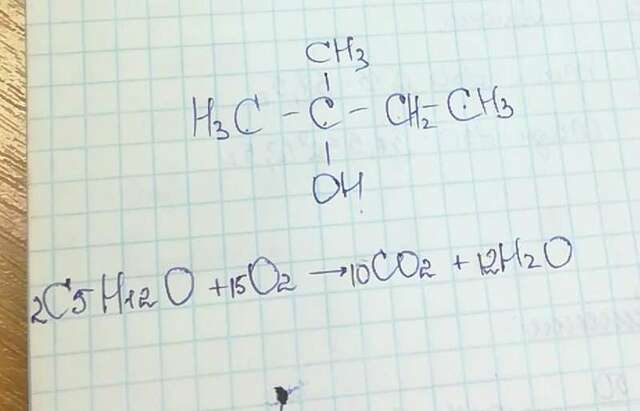 CH3
H3C - C - CH2 - CH3
OH
2C5H12O + 15O2 → 10CO2 + 12H2O